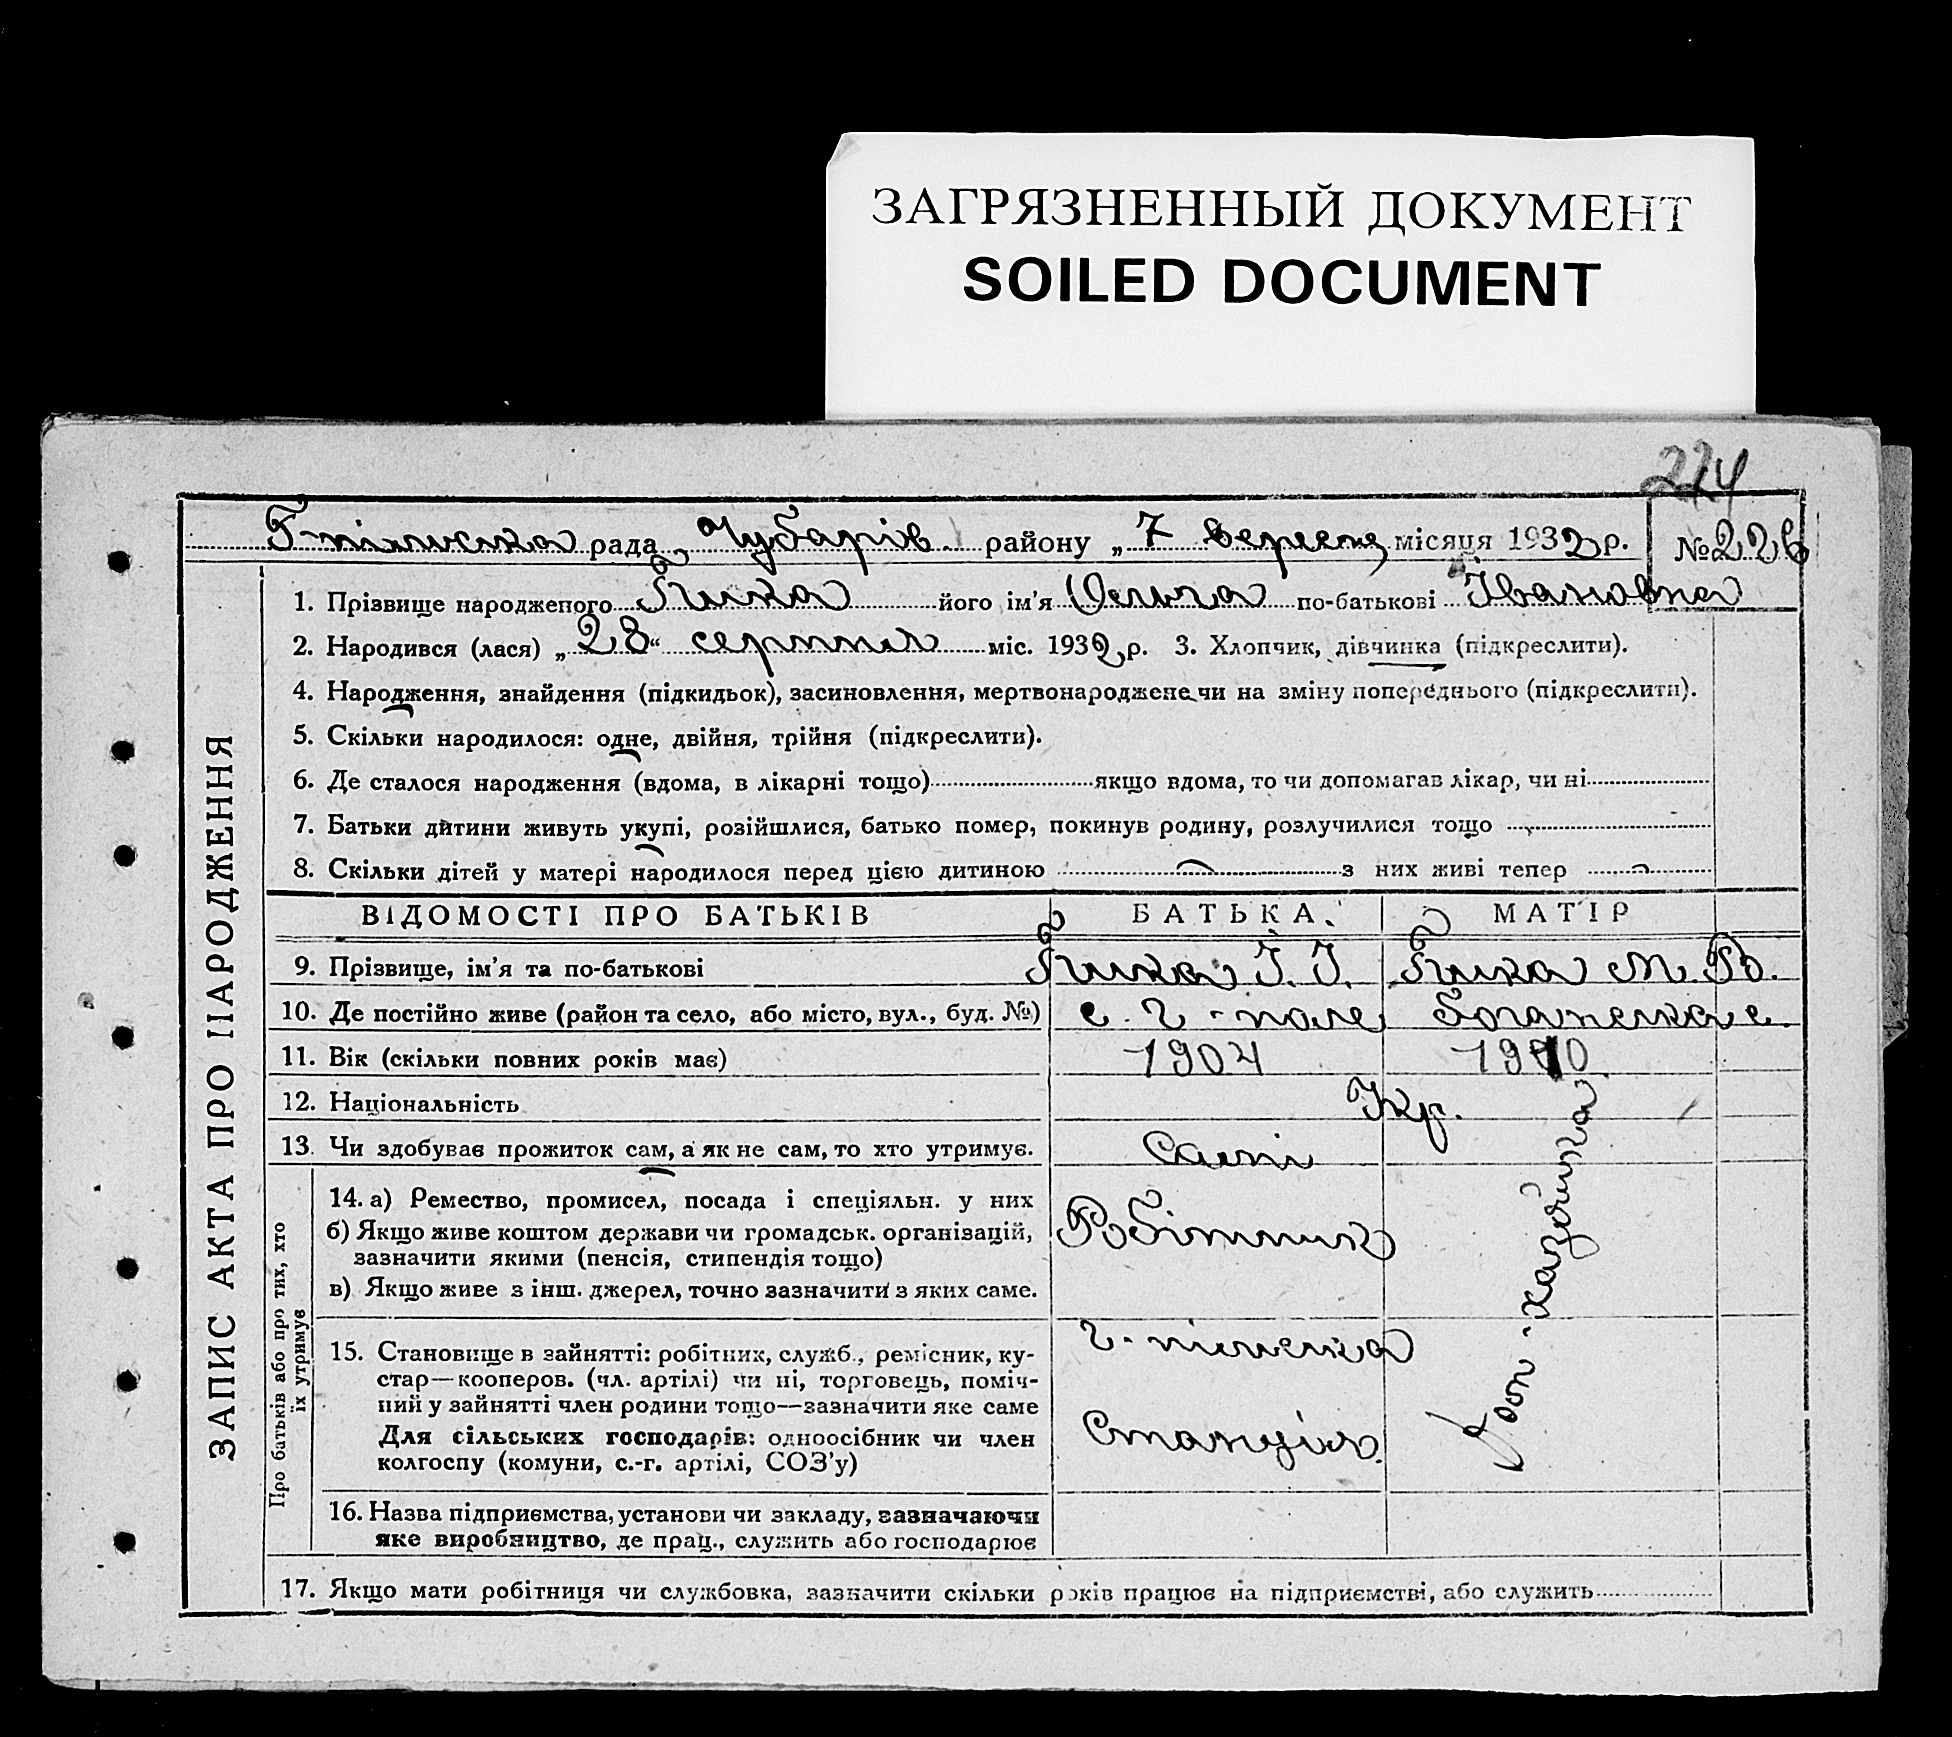 ЗАГРЯЗНЕННЫЙ ДОКУМЕНТ
SOILED DOCUMENT
224
Г-пільська рада, Чубарів району „7 вересня місяця 1932 р. № 226
ЗАПИС АКТА ПРО НАРОДЖЕННЯ
1. Прізвище народженого його ім'я Ольга по-батькові Івановна
2. Народився (лася) „28“ серпня міс. 1932 р. 3. Хлопчик, дівчинка (підкреслити).
4. Народження, знайдення (підкидьок), засиновлення, мертвонароджене чи на зміну попереднього (підкреслити).
5. Скільки народилося: одне, двійня, трійня (підкреслити).
6. Де сталося народження (вдома, в лікарні тощо) якщо вдома, то чи допомагав лікар, чи ні
7. Батьки дитини живуть укупі, розійшлися, батько помер, покинув родину, розлучилися тощо
8. Скільки дітей у матері народилося перед цією дитиною з них живі тепер
ВІДОМОСТІ ПРО БАТЬКІВ БАТЬКА МАТІР
9. Прізвище, ім'я та по-батькові І. І. М.
10. Де постійно живе (район та село, або місто, вул., буд. №) с. Г-поле
11. Вік (скільки повних років має) 1904 1910
12. Національність Укр.
13. Чи здобуває прожиток сам, а як не сам, то хто утримує. Самі
Про батьків або про тих, хто їх утримує
14. а) Ремество, промисел, посада і спеціяльн. у них Робітник Дом-хазяйка
б) Якщо живе коштом держави чи громадськ. організацій,
зазначити якими (пенсія, стипендія тощо)
в) Якщо живе з інш. джерел, точно зазначити з яких саме.
15. Становище в зайнятті: робітник, служб., ремісник, ку- Г-пільська
стар—кооперов. (чл. артілі) чи ні, торговець, поміч-
ний у зайнятті член родини тощо—зазначити яке саме
Для сільських господарів: одноосібник чи член Станція
колгоспу (комуни, с.-г. артілі, СОЗ'у)
16. Назва підприємства, установи чи закладу, зазначаючи
яке виробництво, де прац., служить або господарює
17. Якщо мати робітниця чи службовка, зазначити скільки років працює на підприємстві, або служить